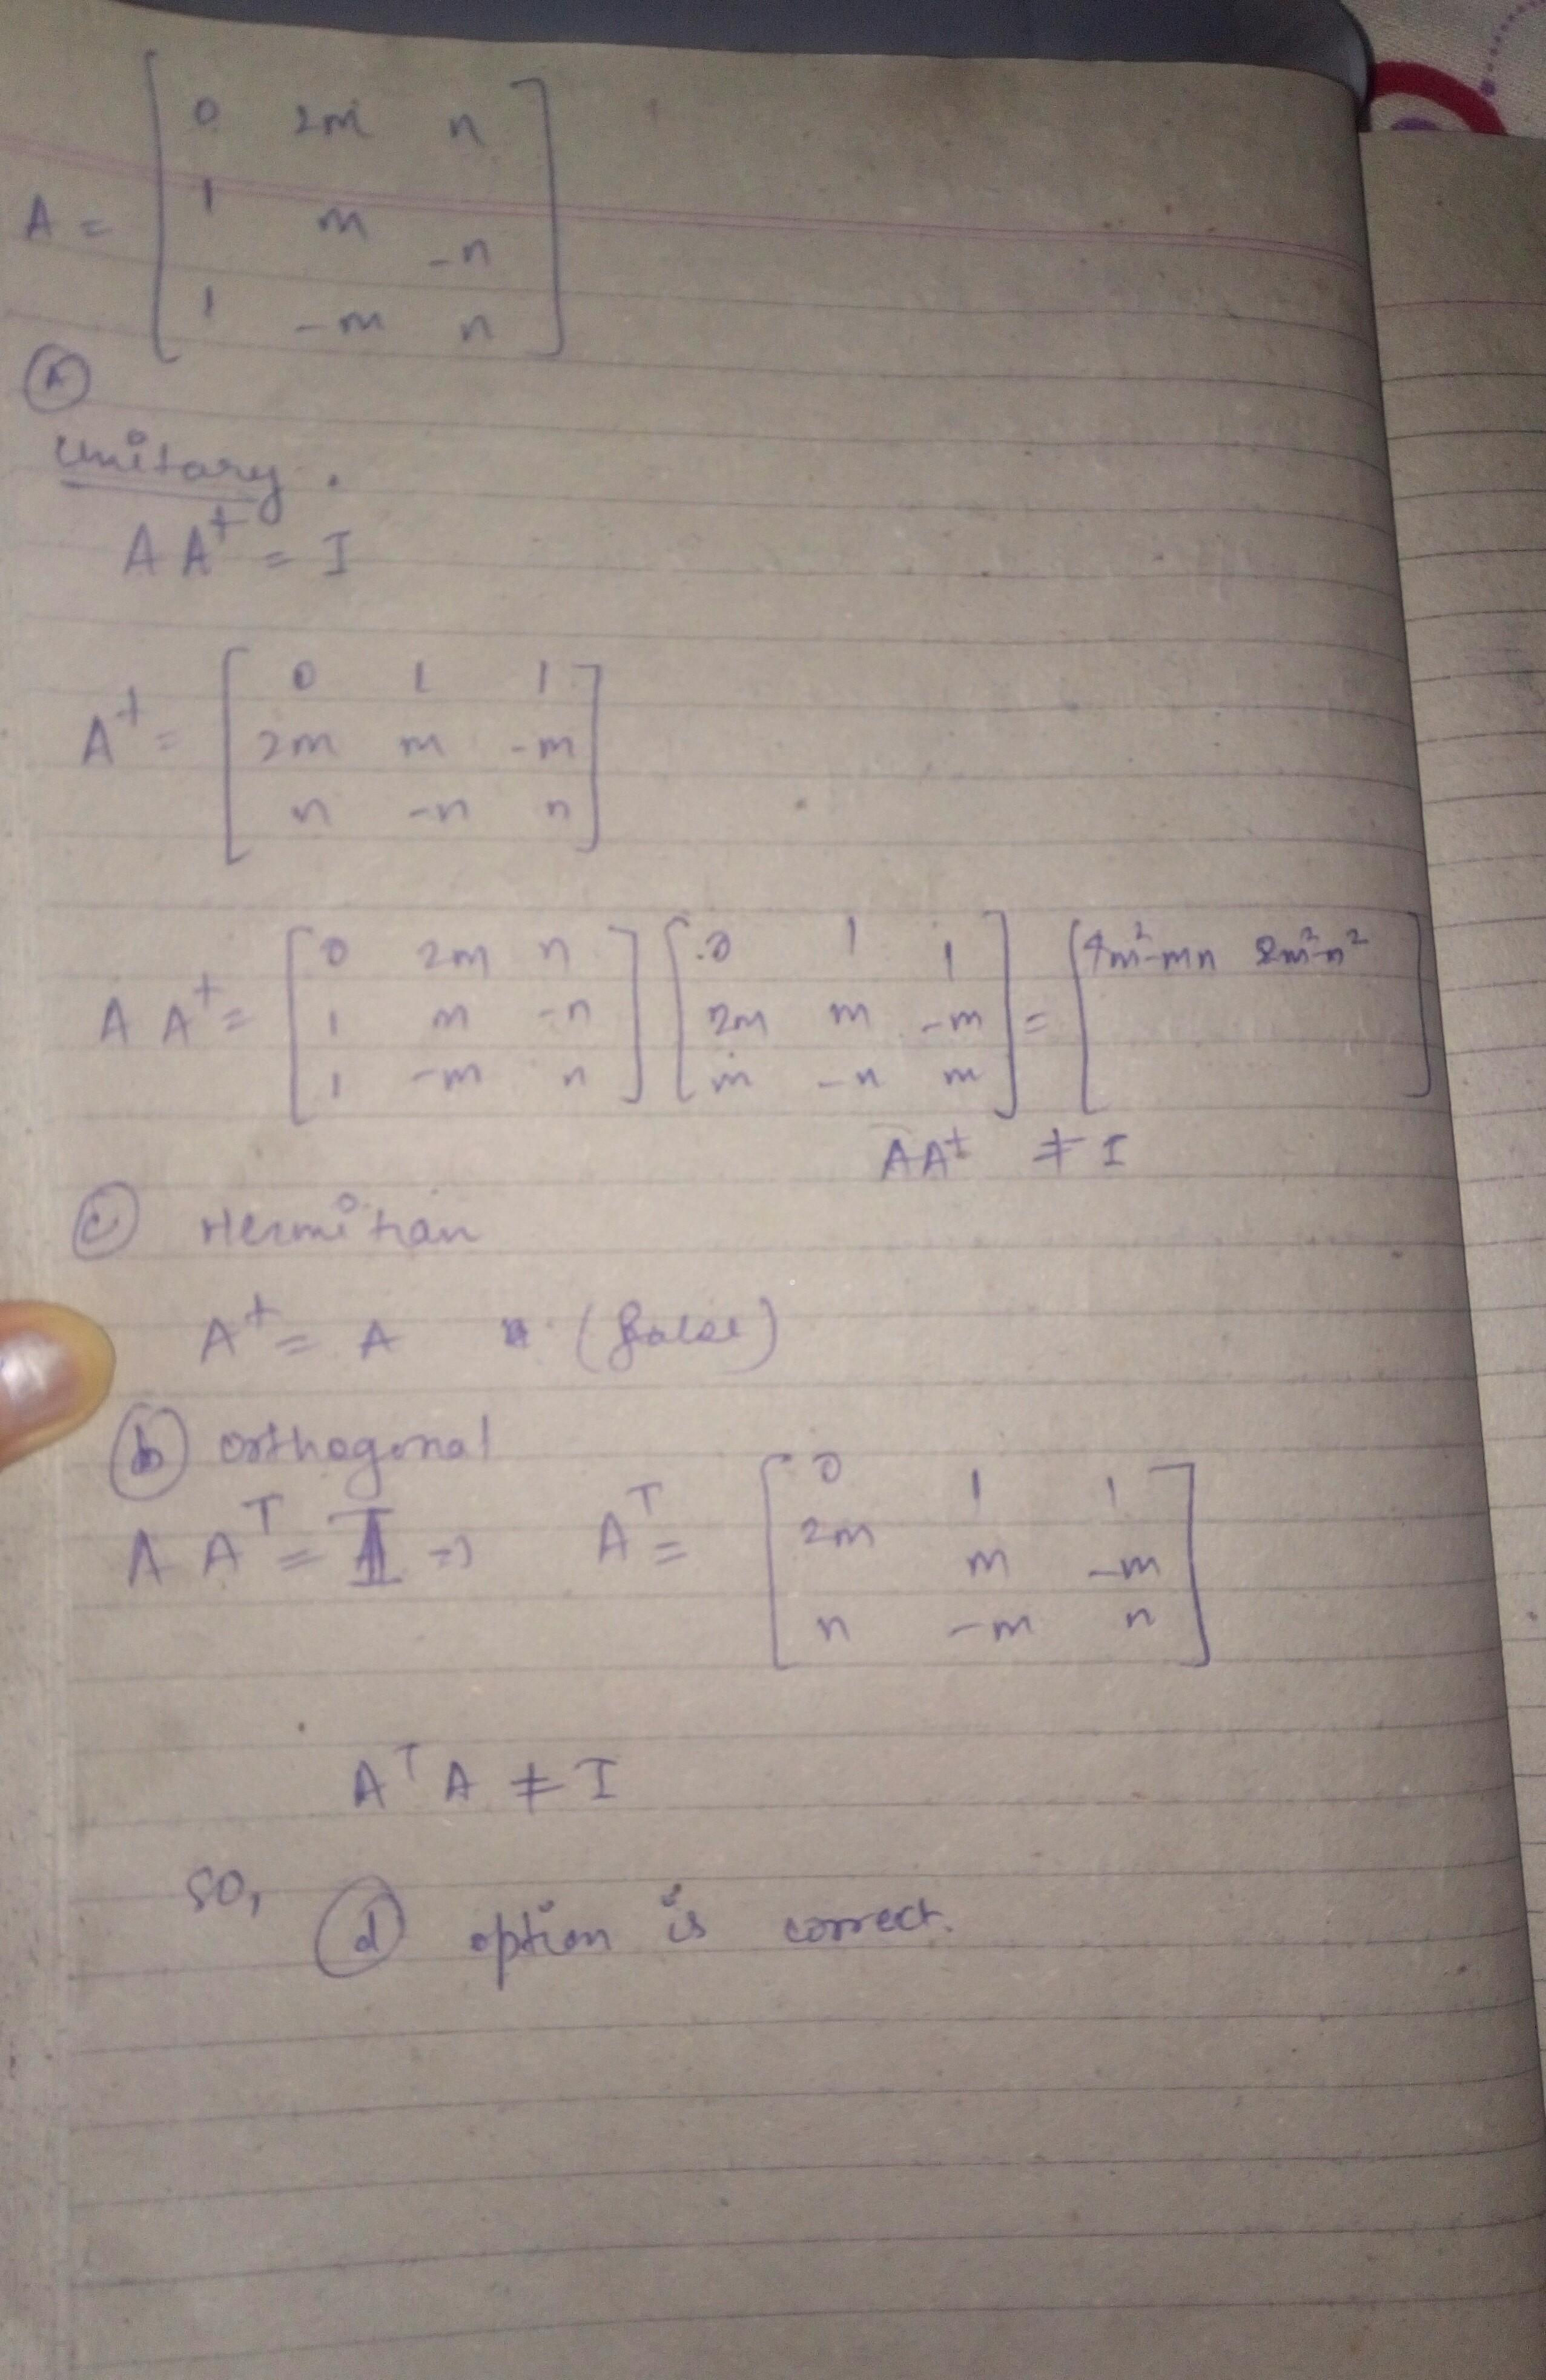 A = [ 0 2m n
1 m -n
1 -m n ]
(A)
Unitary.
A A† = I
A† = [ 0 1 1
2m m -m
n -n n ]
A A† = [ 0 2m n
1 m -n
1 -m n ] [ 0 1 1
2m m -m
m -n m ] = [ 4m²-mn 2m²-n² ]
AA† ≠ I
(c) Hermitian
A† = A (false)
(b) orthogonal
A Aᵀ = I => Aᵀ = [ 0 1 1
2m m -m
n -m n ]
Aᵀ A ≠ I
SO, (d) option is correct.